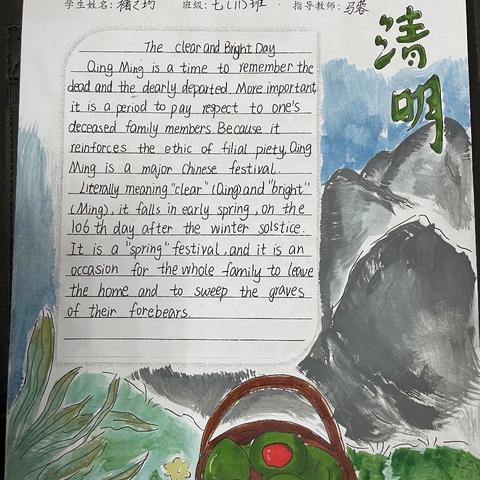 学生姓名: 褚之均 班级: 七(11)班 指导教师: 马蓉
清明
The clear and Bright Day
Qing Ming is a time to remember the
dead and the dearly departed. More important,
it is a period to pay respect to one's
deceased family members. Because it
reinforces the ethic of filial piety, Qing
Ming is a major Chinese festival.
Literally meaning "clear" (Qing) and "bright"
(Ming), it falls in early spring, on the
106 th day after the winter solstice.
It is a "spring" festival, and it is an
occasion for the whole family to leave
the home and to sweep the graves
of their forebears.